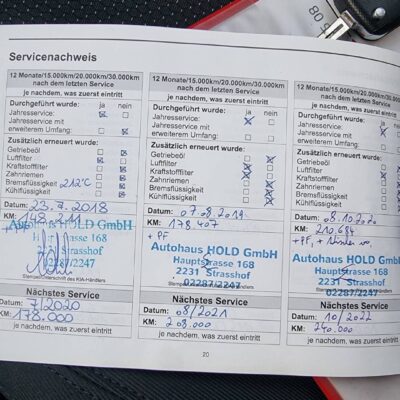 Servicenachweis
12 Monate/15.000km/20.000km/30.000km
nach dem letzten Service
je nachdem, was zuerst eintritt
Durchgeführt wurde: ja nein
Jahresservice:
Jahresservice mit
erweiterem Umfang:
Zusätzlich erneuert wurde:
Getriebeöl
Luftfilter
Kraftstofffilter
Zahnriemen
Bremsflüssigkeit 212°C
Kühlflüssigkeit
Datum: 23.7.2018
KM: 148.211
Autohaus HOLD GmbH
Hauptstrasse 168
2231 Strasshof
02287/2247
Stempel/Unterschrift des KIA-Händlers
Nächstes Service
Datum: 7/2020
KM: 178.000
je nachdem, was zuerst eintritt
12 Monate/15.000km/20.000km/30.000km
nach dem letzten Service
je nachdem, was zuerst eintritt
Durchgeführt wurde: ja nein
Jahresservice:
Jahresservice mit
erweiterem Umfang:
Zusätzlich erneuert wurde:
Getriebeöl
Luftfilter
Kraftstofffilter
Zahnriemen
Bremsflüssigkeit
Kühlflüssigkeit
Datum: 07.08.2019
KM: 178.407
+ PF
Autohaus HOLD GmbH
Hauptstrasse 168
2231 Strasshof
02287/2247
Nächstes Service
Datum: 08/2021
KM: 208.000
je nachdem, was zuerst eintritt
12 Monate/15.000km/20.000km/30.000km
nach dem letzten Service
je nachdem, was zuerst eintritt
Durchgeführt wurde: ja nein
Jahresservice:
Jahresservice mit
erweiterem Umfang:
Zusätzlich erneuert wurde:
Getriebeöl
Luftfilter
Kraftstofffilter
Zahnriemen
Bremsflüssigkeit
Kühlflüssigkeit
Datum: 08.10.2020
KM: 210.684
+ PF, +
Autohaus HOLD GmbH
Hauptstrasse 168
2231 Strasshof
02287/2247
Nächstes Service
Datum: 10/2022
KM: 240.000
je nachdem, was zuerst eintritt
20